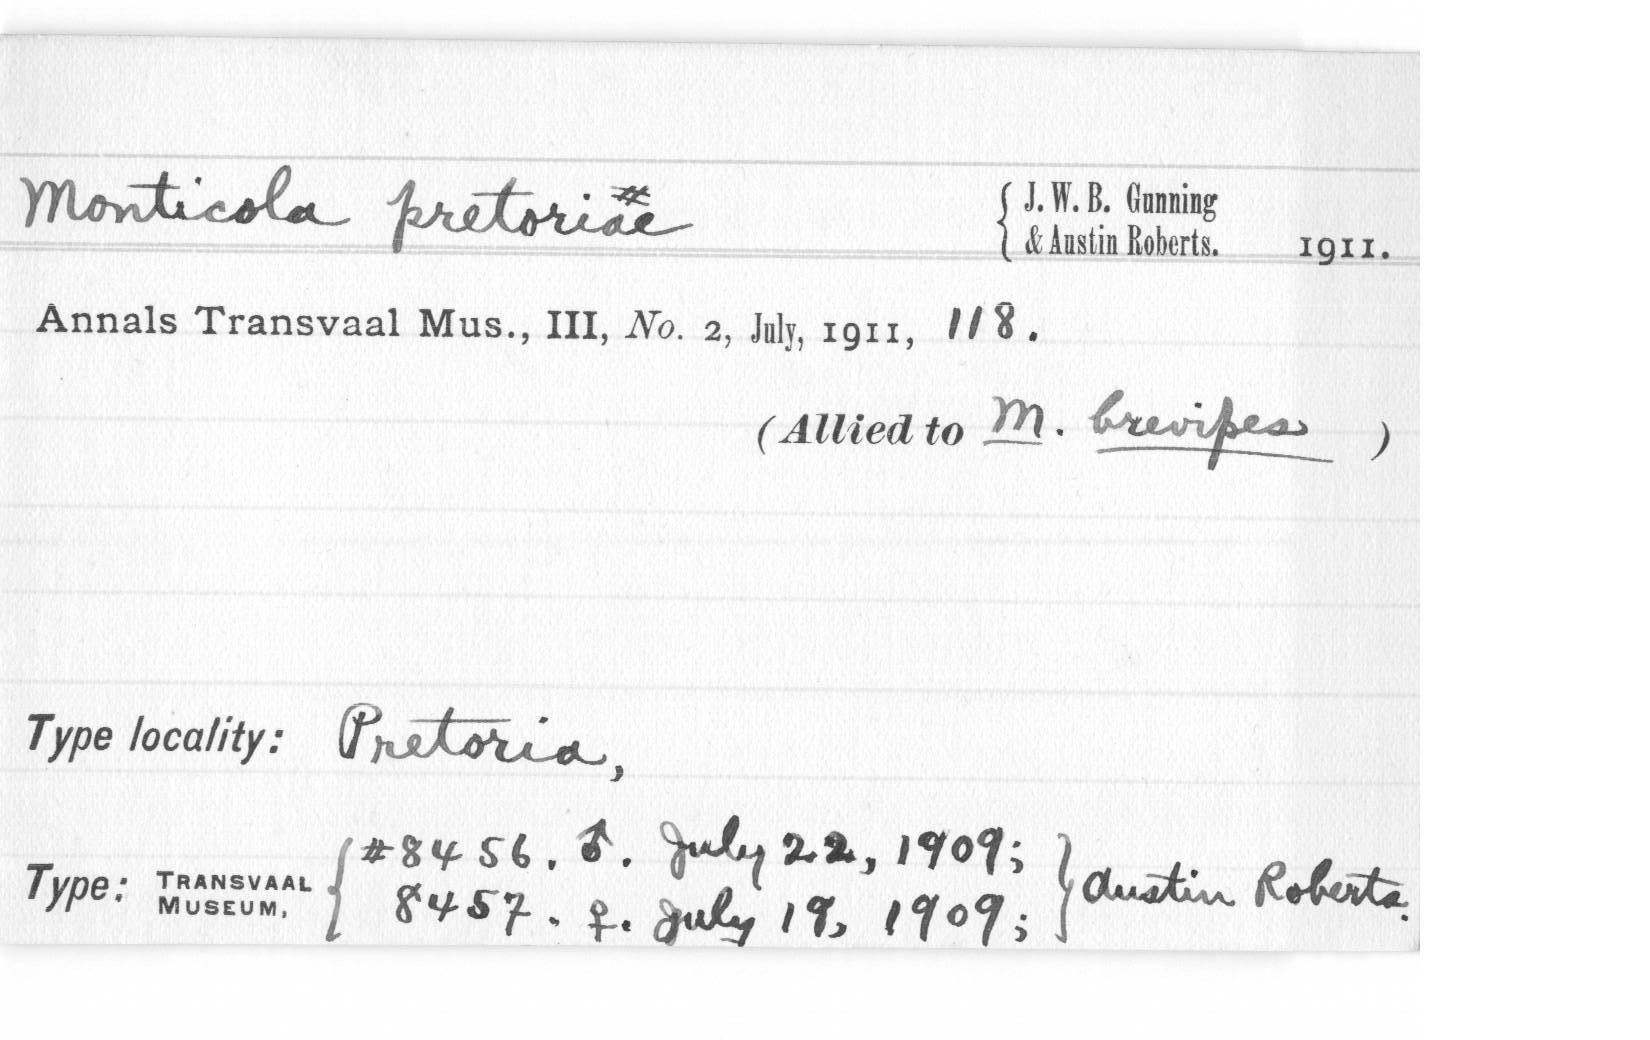 Monticola pretoriae # { J. W. B. Gunning
& Austin Roberts. 1911.
Annals Transvaal Mus., III, No. 2, July, 1911, 118.
(Allied to M. brevipes )
Type locality: Pretoria,
Type: TRANSVAAL MUSEUM, { #8456. ♂. July 22, 1909;
8457. ♀. July 19, 1909; } Austin Roberts.